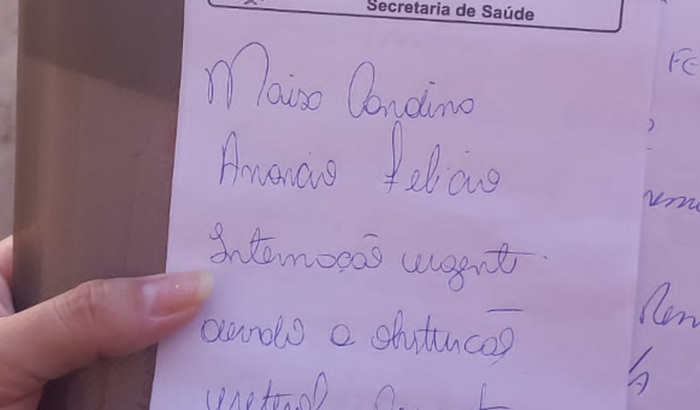 Secretaria de Saúde
Maisa Candina
Ananias Felicio
Internação urgente
devido a obstrução
uretral
FE